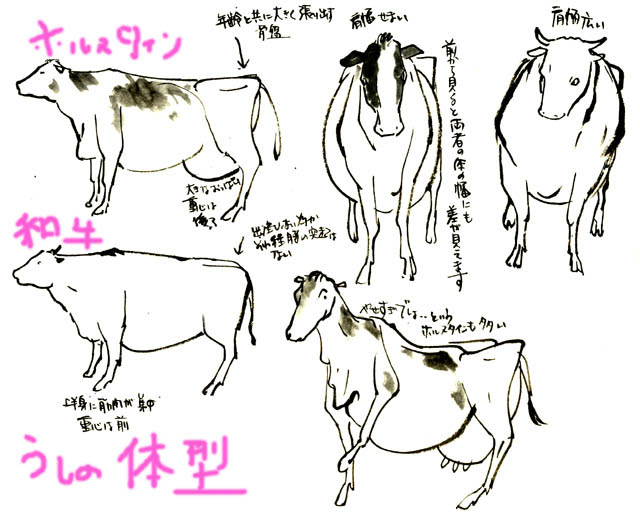 ホルスタイン
年齢と共に大きく張り出す
骨盤
肩幅せまい
肩幅広い
前から見ると両者の体の幅にも
差が見えます
大きなおっぱい
重心は
後ろ
和牛
出産しない為か
それ程腰の突起は
ない
やせすぎでしょ・・という
ホルスタインも多い
上半身に筋肉が集中
重心は前
うしの体型